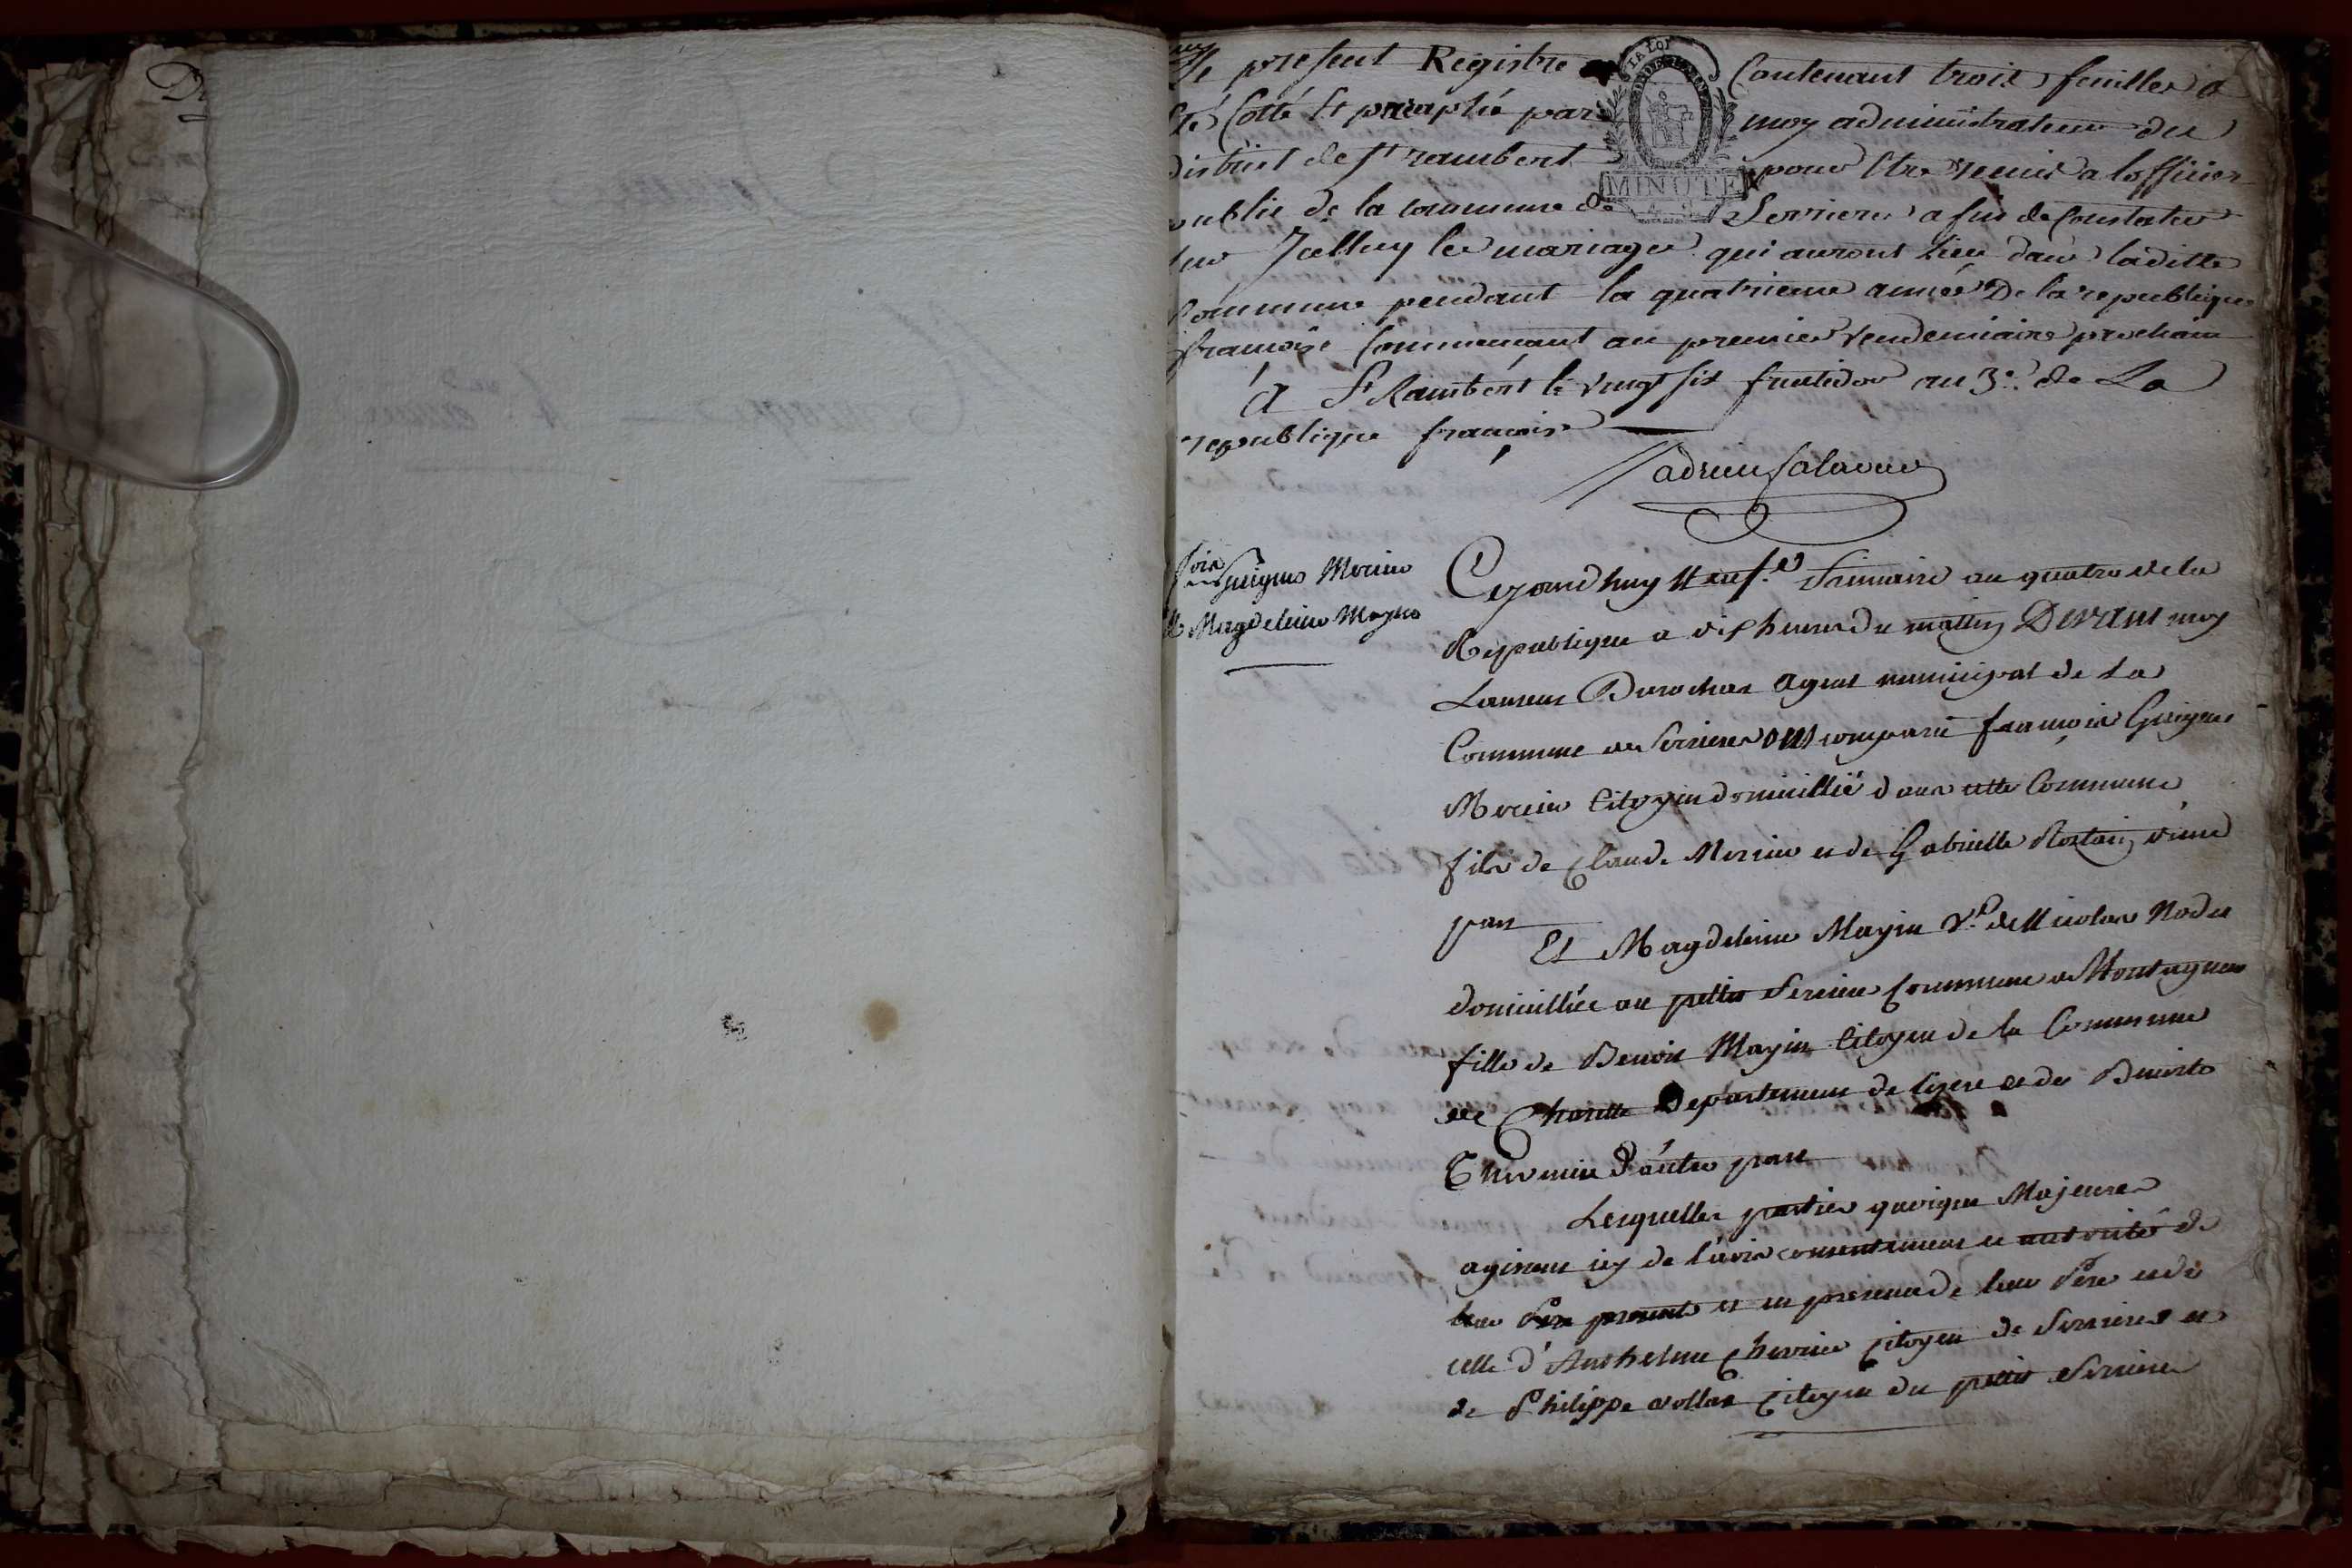 Le present Registre contenant trois feuilles a
été Cotté et paraphé par moy administrateur du
district de st rambert pour être remis a lofficier
public de la commune de Serrieres a fin de constater
sur Jcelluy les mariages qui auront lieu dans laditte
Commune pendant la quatrieme année De la republique
françoise Commençant au premier vendemiaire prochain
A St Rambert le vingt six fructidor an 3e. de La
republique françoise
LA LOI
MINUTE
Guigues Mercier
& Magdeleine Magnin
Cejourdhuy neuf frimaire an quatre de la
Republique a dix heures du mattin Devant moy
Laurent Durochat Agent municipal de La
Commune de Serrieres ont comparu françois Guigues
Mercier Citoyen domicillié dans cette Commune
fils de Claude Mercier et de Gabrielle d'une
part
Et Magdeleine Magnin Ve. de Nicolas
domicilliée au petit Serrieres Commune de Montagnieu
fille de Benoit Magnin Citoyen de la Commune
de Charette Département de lizere et de Benoite
d'autre part
Lesquelles parties quoique Majeures
agissent icy de l'avis consentement et autorité de
leur Père et en présence de leur Père et de
celle d'Anthelme Citoyen de Serrieres et
de Philippe Citoyen du petit Serrieres